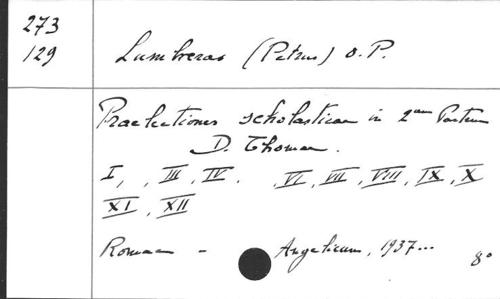 273
129
Lumbreras (Petrus) O.P.
Praelectiones scholasticae in 2am Partem
D. Thomae.
I, , III, IV. , VI, VII, VIII, IX, X
XI, XII
Romae - Angelicum, 1937...
8°